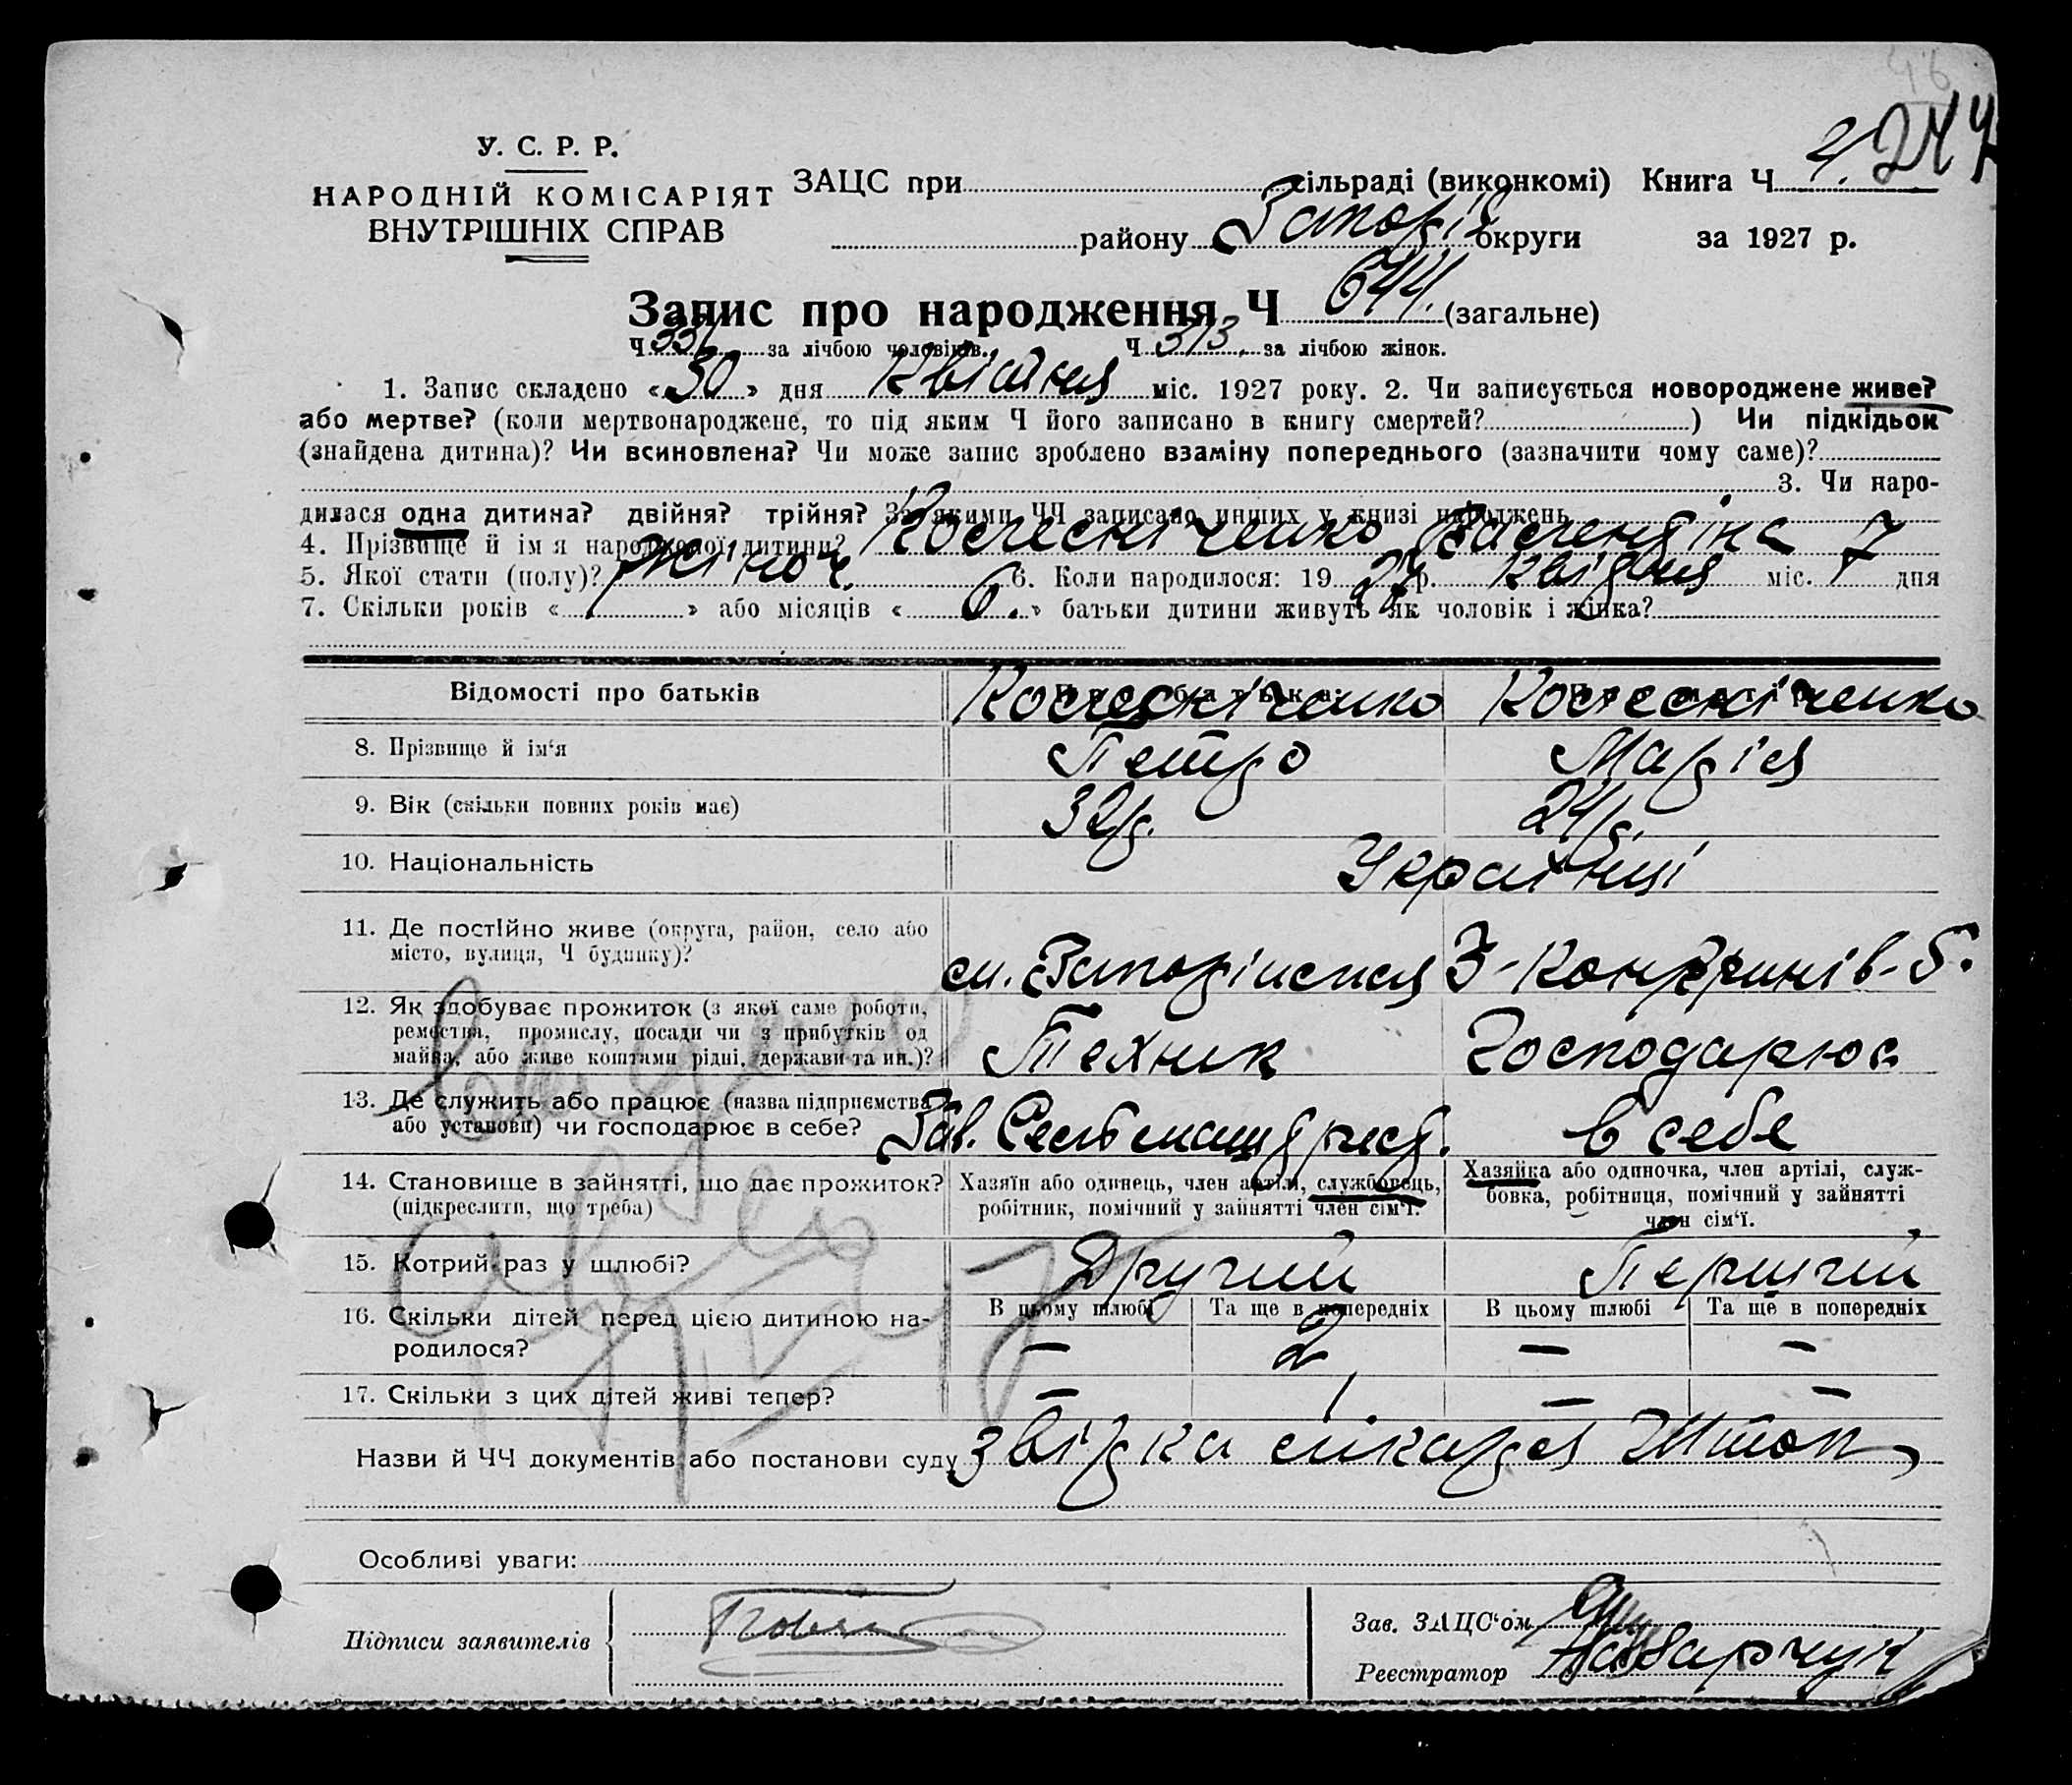 У. С. Р. Р.
НАРОДНІЙ КОМІСАРІЯТ
ВНУТРІШНІХ СПРАВ
ЗАЦС при сільраді (виконкомі) Книга Ч
району Запоріз округи за 1927 р.
Запис про народження Ч 644. (загальне)
Ч 331 за лічбою чоловіків. Ч 313. за лічбою жінок.
1. Запис складено «30» дня Квітня міс. 1927 року. 2. Чи записується новороджене живе?
або мертве? (коли мертвонароджене, то під яким Ч його записано в книгу смертей? ) Чи підкідьок
(знайдена дитина)? Чи всиновлена? Чи може запис зроблено взаміну попереднього (зазначити чому саме)?
3. Чи наро-
дилася одна дитина? двійня? трійня? За якими ЧЧ записано инших у книзі народжень
4. Прізвище й ім'я народженої дитини? Колесніченко
5. Якої стати (полу)? жіноч. 6. Коли народилося: 1927 р. квітня міс. 7 дня
7. Скільки років « » або місяців « 6. » батьки дитини живуть як чоловік і жінка?
Відомості про батьків
Колесніченко Колесніченко
8. Прізвище й ім'я Петро Марія
9. Вік (скільки повних років має) 32 р. 24 р.
10. Національність Українці
11. Де постійно живе (округа, район, село або
місто, вулиця, Ч будинку)? 5.
12. Як здобуває прожиток (з якої саме роботи,
ремества, промислу, посади чи з прибутків од
майна, або живе коштами рідні, держави та ин.)? Технік Господарює
13. Де служить або працює (назва підприємства
або установи) чи господарює в себе? Зав. в себе
14. Становище в зайнятті, що дає прожиток?
(підкреслити, що треба)
Хазяїн або одинець, член артілі, службовець,
робітник, помічний у зайнятті член сім'ї.
Хазяйка або одиночка, член артілі, служ-
бовка, робітниця, помічний у зайнятті
член сім'ї.
15. Котрий раз у шлюбі? Другий Перший
16. Скільки дітей перед цією дитиною на-
родилося?
В цьому шлюбі Та ще в попередніх В цьому шлюбі Та ще в попередніх
— 2 — —
17. Скільки з цих дітей живі тепер? — 1 — —
Назви й ЧЧ документів або постанови суду
Особливі уваги:
Підписи заявителів
Зав. ЗАЦС'ом
Реєстратор